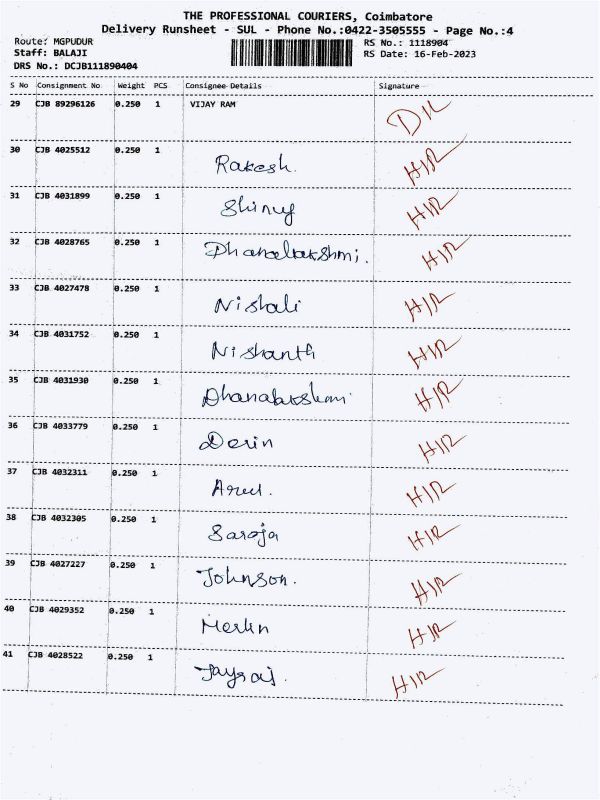 THE PROFESSIONAL COURIERS, Coimbatore
Delivery Runsheet - SUL - Phone No.:0422-3505555 - Page No.:4
Route: MGPUDUR RS No.: 1118904
Staff: BALAJI RS Date: 16-Feb-2023
DRS No.: DCJB111890404
S No Consignment No Weight PCS Consignee Details Signature
29 CJB 89296126 0.250 1 VIJAY RAM
30 CJB 4025512 0.250 1 Rakesh. HIR
31 CJB 4031899 0.250 1 Shiny HIR
32 CJB 4028765 0.250 1 Dhanalakshmi. HIR
33 CJB 4027478 0.250 1 Nishali HIR
34 CJB 4031752 0.250 1 Nishanth HIR
35 CJB 4031930 0.250 1 Dhanalakshmi HIR
36 CJB 4033779 0.250 1 Derin HIR
37 CJB 4032311 0.250 1 HIR
38 CJB 4032305 0.250 1 Saroja HIR
39 CJB 4027227 0.250 1 Johnson. HIR
40 CJB 4029352 0.250 1 Merlin HIR
41 CJB 4028522 0.250 1 Jayraj. HIR